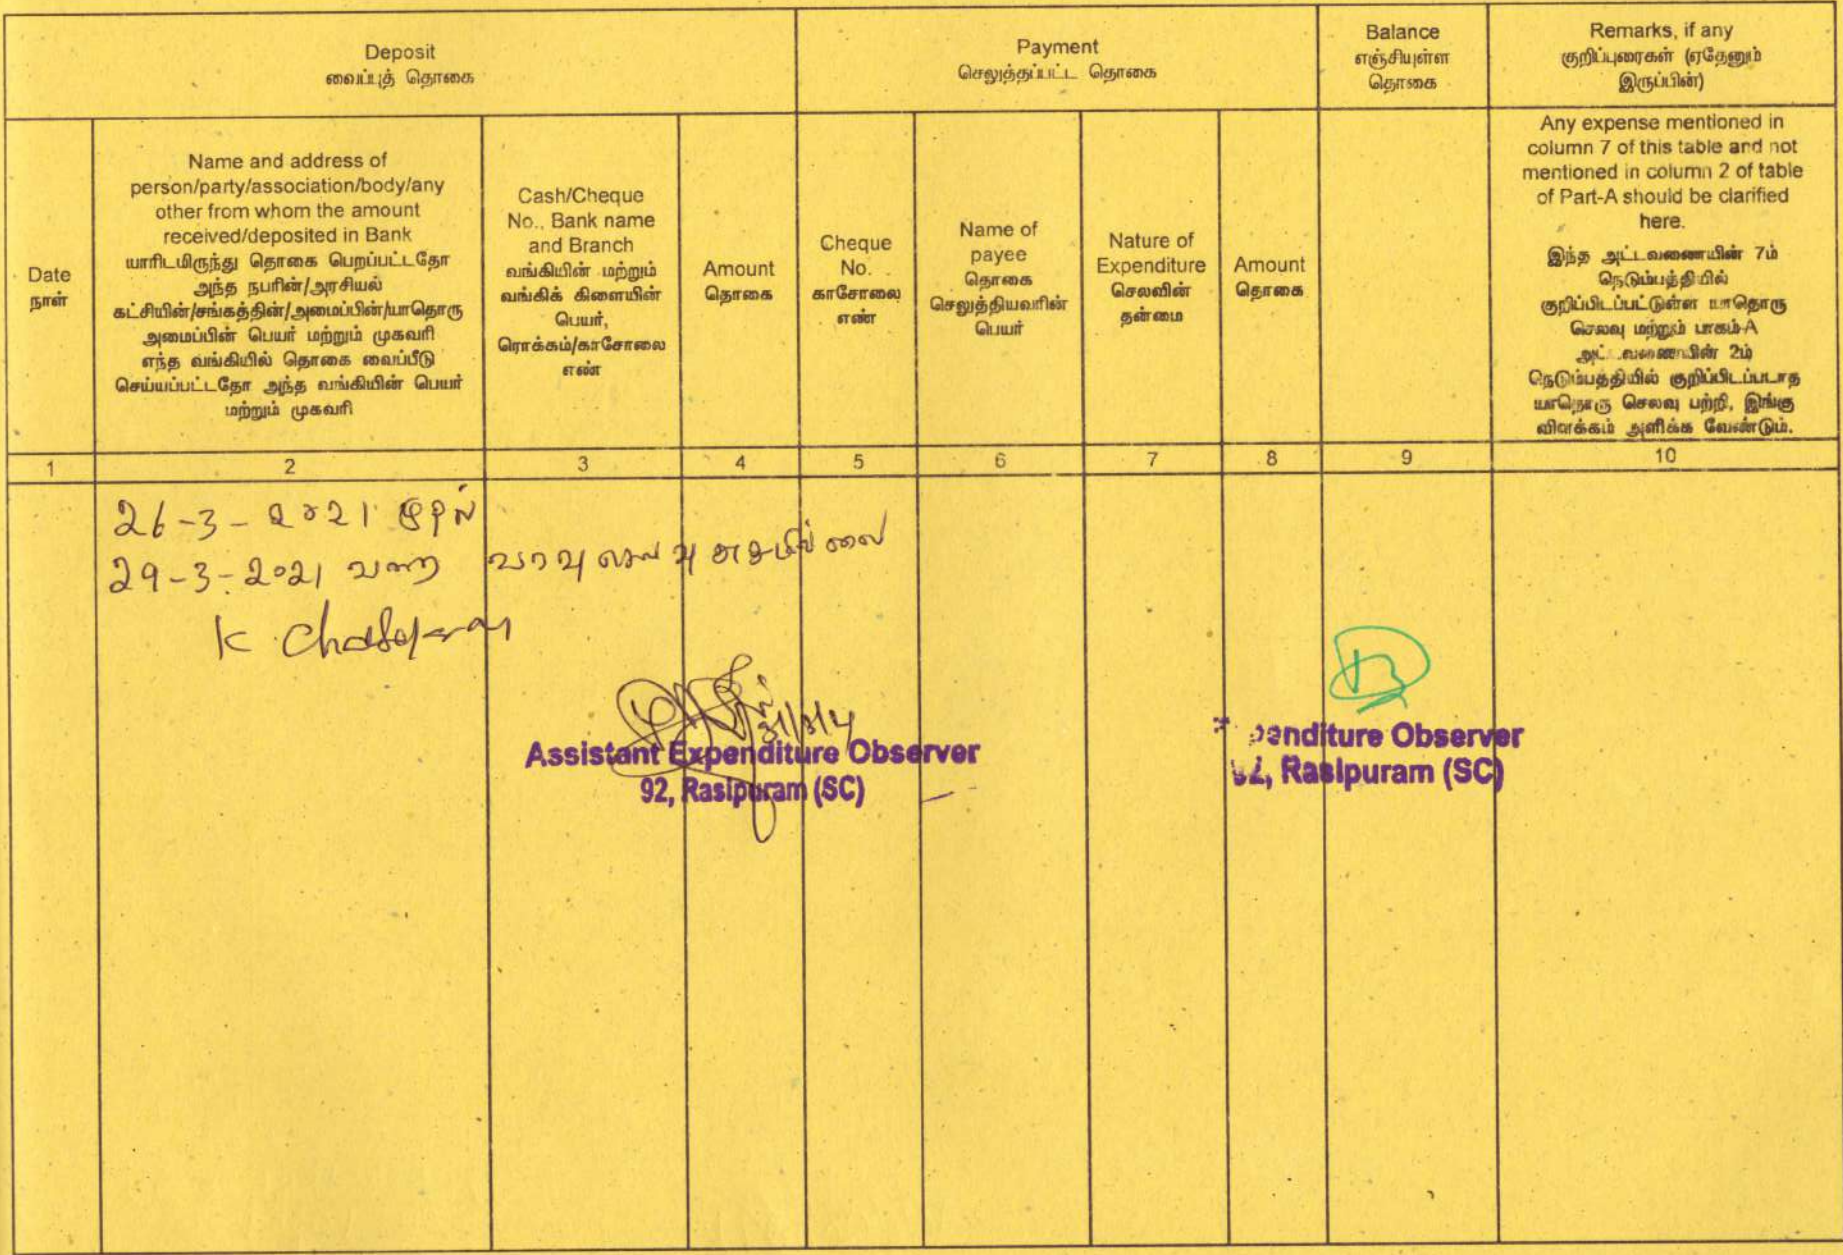 Deposit
வைப்புத் தொகை
Payment
செலுத்தப்பட்ட தொகை
Balance
எஞ்சியுள்ள
தொகை
Remarks, if any
குறிப்புரைகள் (ஏதேனும்
இருப்பின்)
Date
நாள்
Name and address of
person/party/association/body/any
other from whom the amount
received/deposited in Bank
யாரிடமிருந்து தொகை பெறப்பட்டதோ
அந்த நபரின்/அரசியல்
கட்சியின்/சங்கத்தின்/அமைப்பின்/யாதொரு
அமைப்பின் பெயர் மற்றும் முகவரி
எந்த வங்கியில் தொகை வைப்பீடு
செய்யப்பட்டதோ அந்த வங்கியின் பெயர்
மற்றும் முகவரி
Cash/Cheque
No., Bank name
and Branch
வங்கியின் மற்றும்
வங்கிக் கிளையின்
பெயர்,
ரொக்கம்/காசோலை
எண்
Amount
தொகை
Cheque
No.
காசோலை
எண்
Name of
payee
தொகை
செலுத்தியவரின்
பெயர்
Nature of
Expenditure
செலவின்
தன்மை
Amount
தொகை
Any expense mentioned in
column 7 of this table and not
mentioned in column 2 of table
of Part-A should be clarified
here.
இந்த அட்டவணையின் 7ம்
நெடும்பத்தியில்
குறிப்பிடப்பட்டுள்ள யாதொரு
செலவு மற்றும் பாகம்-A
அட்டவணையின் 2ம்
நெடும்பத்தியில் குறிப்பிடப்படாத
யாதொரு செலவு பற்றி, இங்கு
விளக்கம் அளிக்க வேண்டும்.
1 2 3 4 5 6 7 8 9 10
26-3-2021 முதல்
29-3-2021 வரை வரவு செலவு ஏதுமில்லை
Assistant Expenditure Observer
92, Rasipuram (SC)
Expenditure Observer
92, Rasipuram (SC)